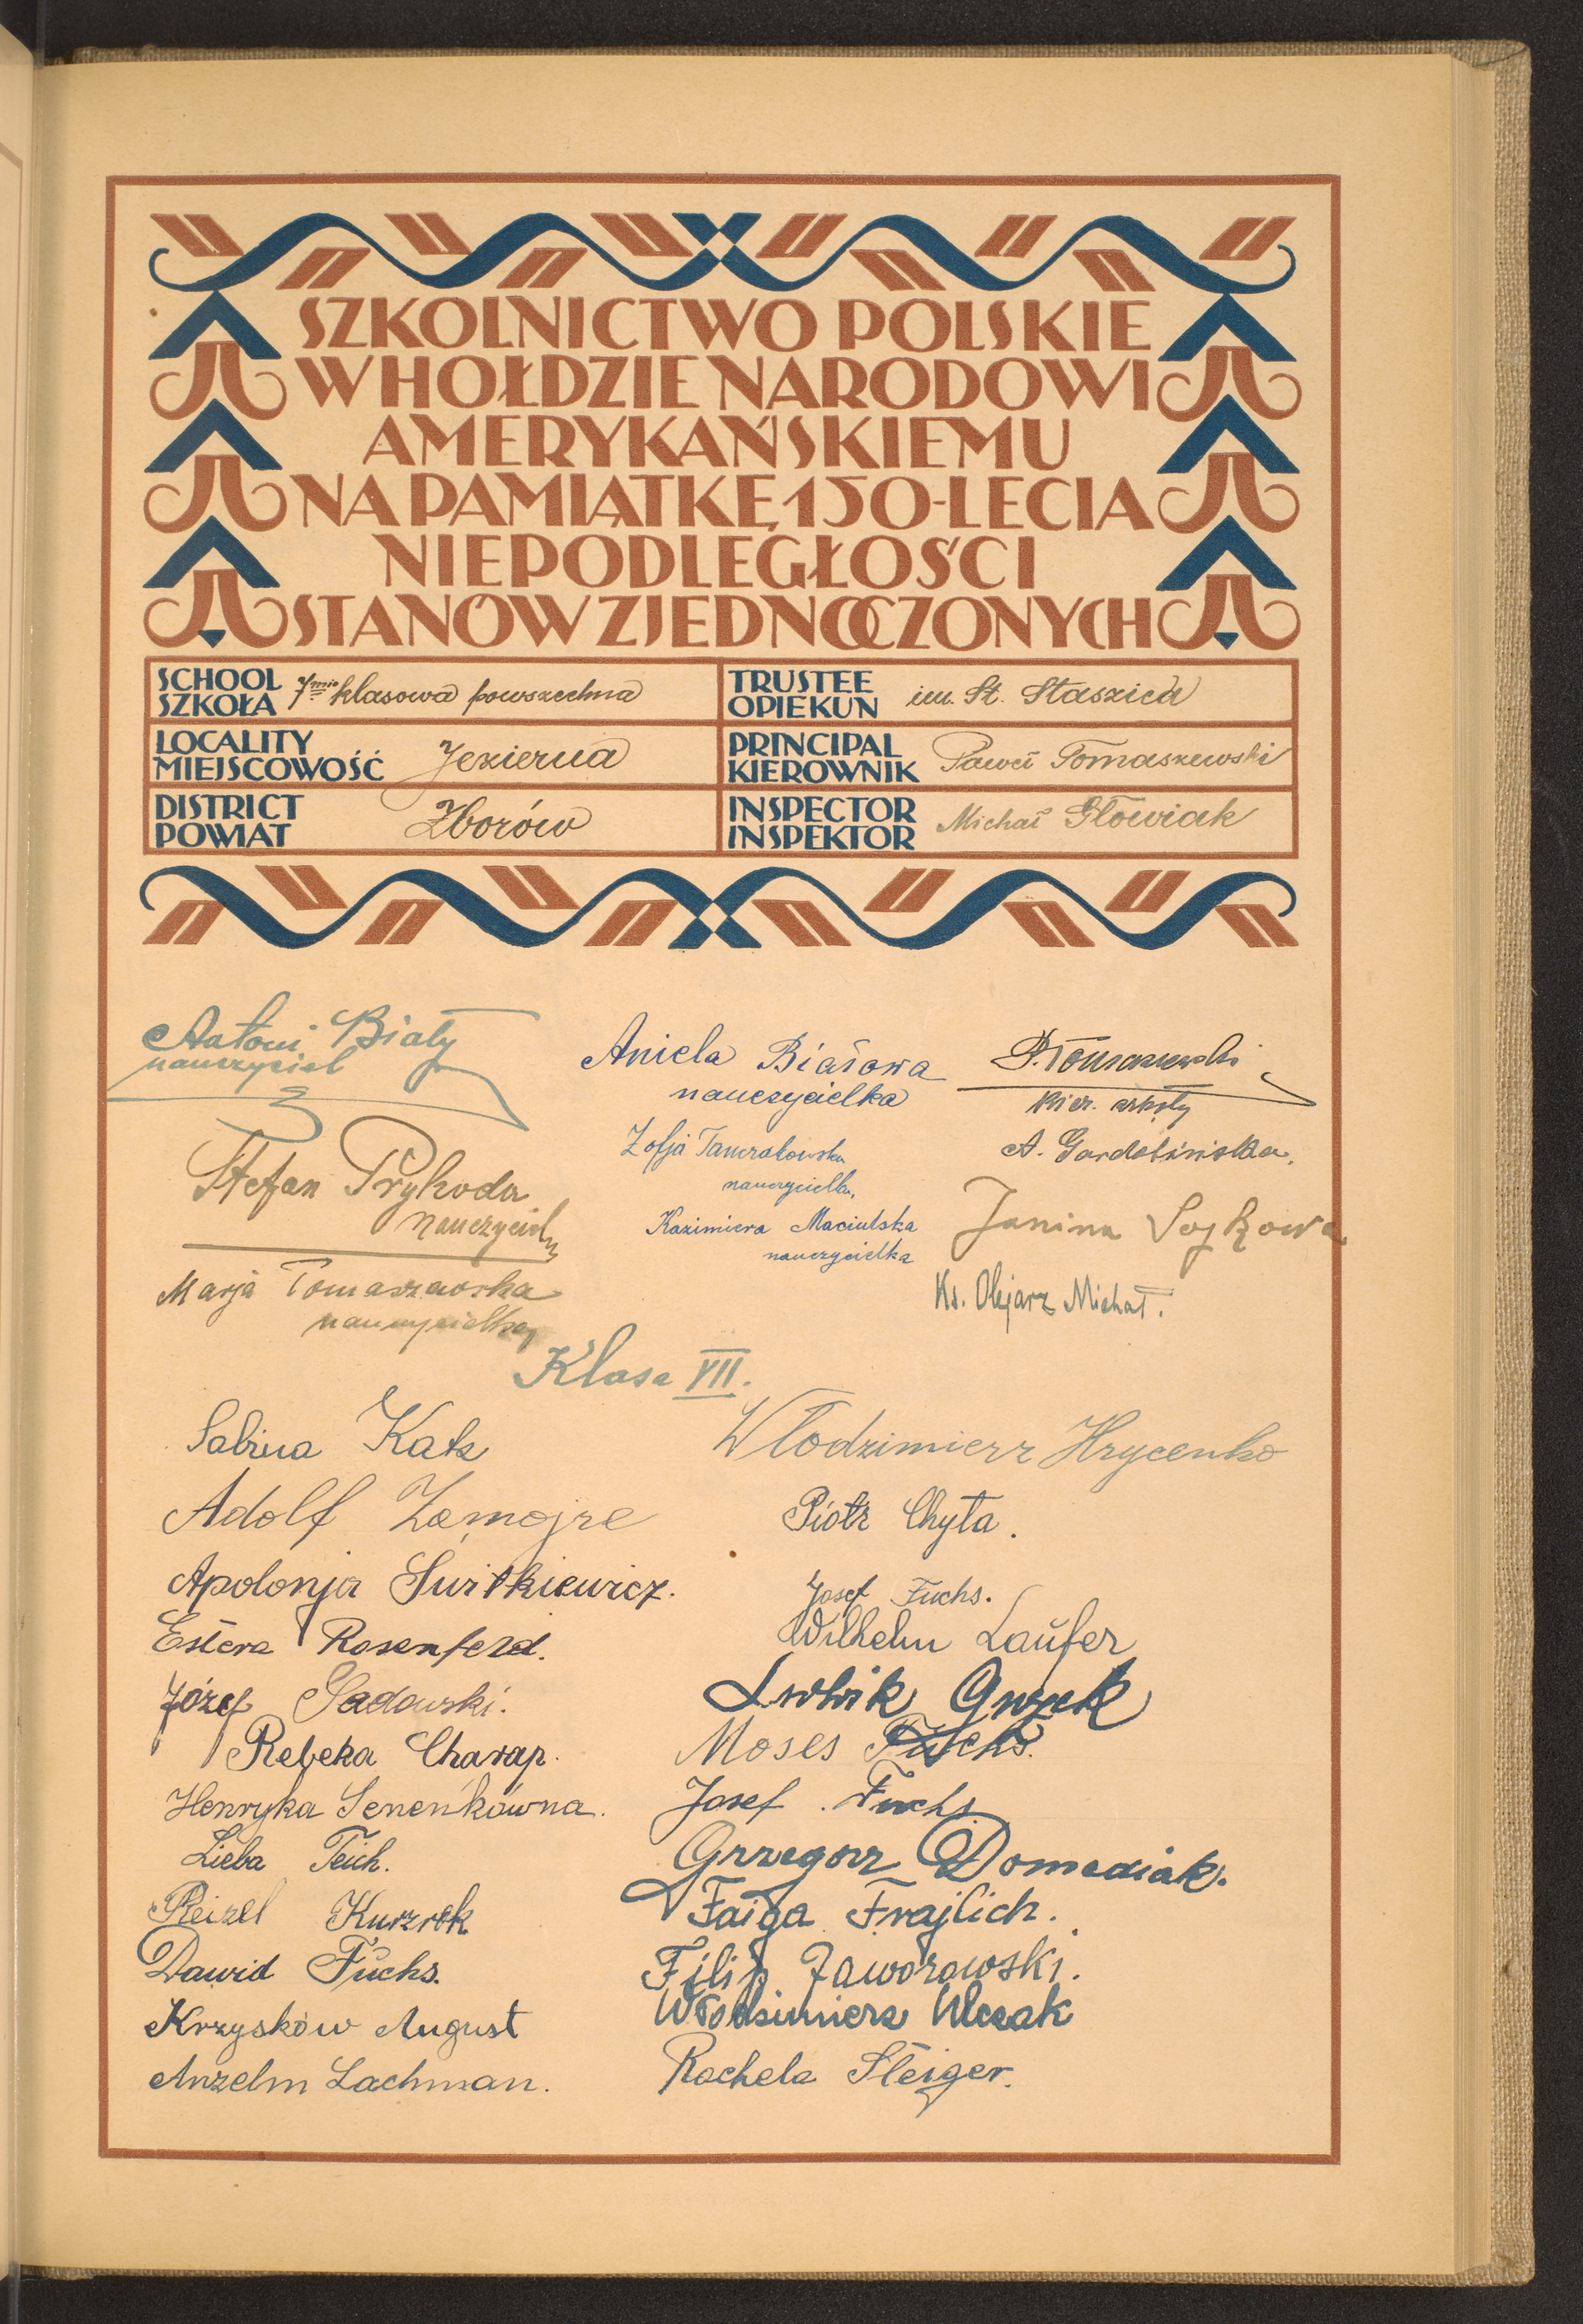 SZKOLNICTWO POLSKIE
W HOŁDZIE NARODOWI
AMERYKAŃSKIEMU
NA PAMIĄTKĘ 150-LECIA
NIEPODLEGŁOŚCI
STANÓW ZJEDNOCZONYCH
SCHOOL
SZKOŁA
7mio klasowa powszechna
TRUSTEE
OPIEKUN
im. St. Staszica
LOCALITY
MIEJSCOWOŚĆ
Jezierna
PRINCIPAL
KIEROWNIK
Paweł Tomaszewski
DISTRICT
POWIAT
Zborów
INSPECTOR
INSPEKTOR
Michał Głowiak
Antoni Biały
nauczyciel
Aniela Białowa
nauczycielka
P. Tomaszewski
kier. szkoły
Stefan Pryhoda
nauczyciel
Zofja Tanczakowska
nauczycielka,
A. Gardolińska,
Kazimiera Maciulska
nauczycielka
Janina Sojkowa
Marja Tomaszewska
nauczycielka
Ks. Olejarz Michał.
Klasa VII.
Sabina Katz
Adolf Zamojre
Apolonja Świtkiewicz.
Estera Rosenfeld.
Józef Sadowski.
Rebeka Charap.
Henryka Senenkówna.
Lieba Teich.
Reizel Kurzrok
Dawid Fuchs.
Krzysków August
Anzelm Lachman.
Włodzimierz Hrycenko
Piotr Chyta.
Josef Fuchs.
Wilhelm Laufer
Ludwik Guzek
Moses Fuchs.
Josef Fuchs
Grzegorz Domaciak.
Faiga Frajlich.
Filip Jaworowski.
Włodzimierz
Rachela Steiger.